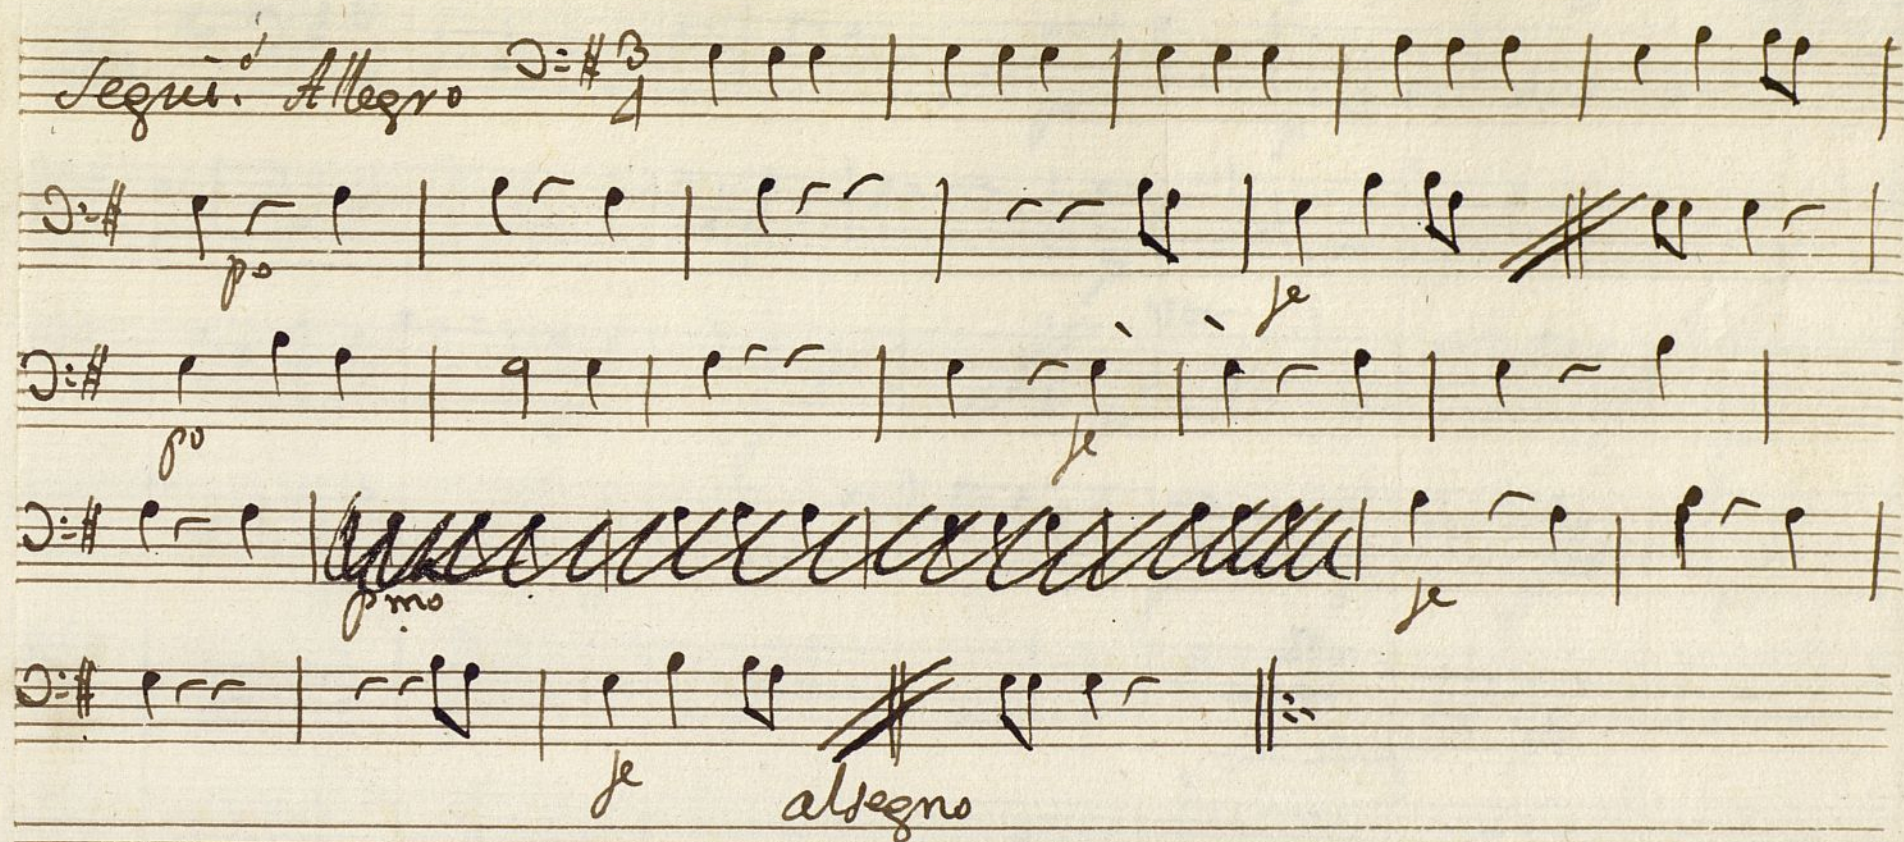 Segui.ˢ Allegro 3/4
po fe
po fe
pmo fe
fe alsegno